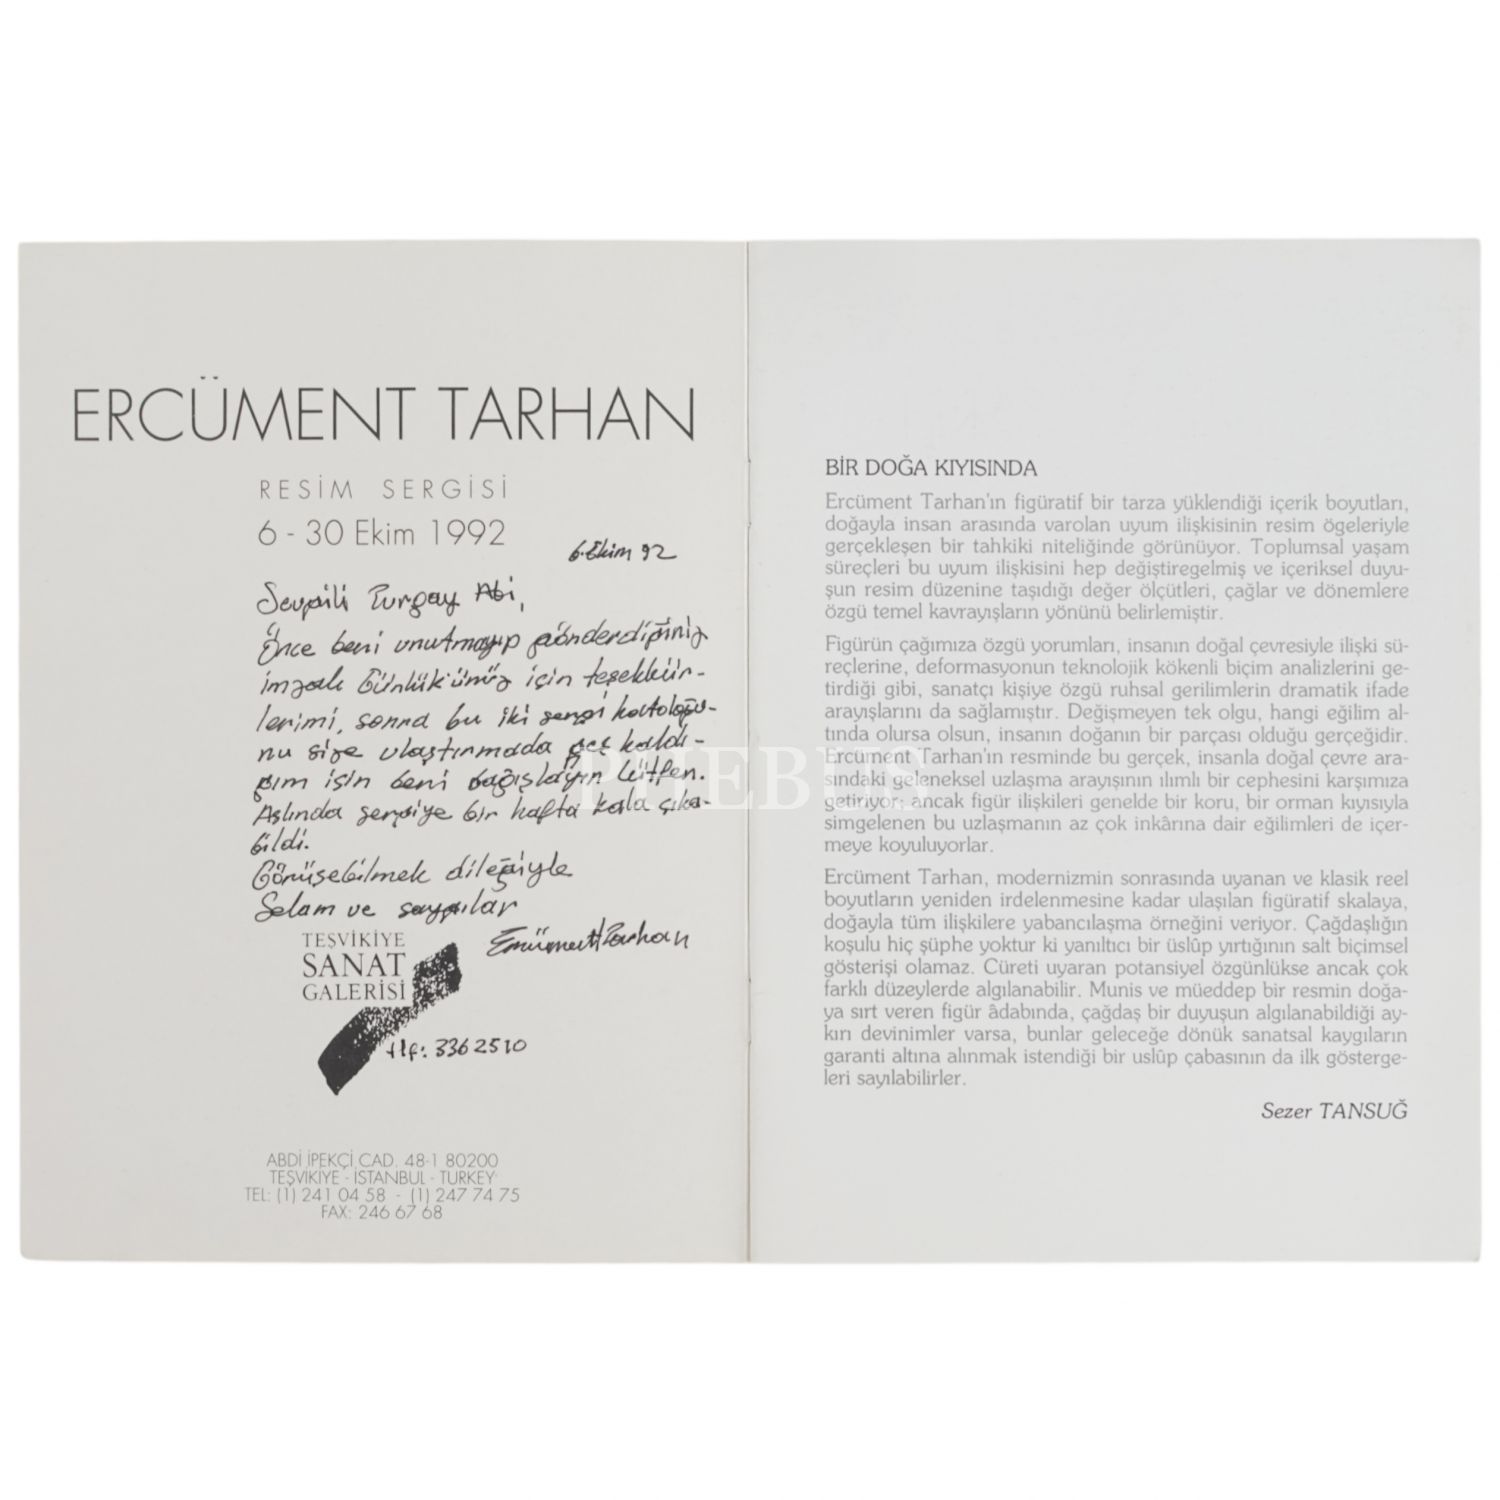 ERCÜMENT TARHAN
RESİM SERGİSİ
6 - 30 Ekim 1992
6.Ekim 92
Sevgili Turgay Abi,
Önce beni unutmayıp gönderdiğiniz
imzalı Günlük'ünüz için teşekkür-
lerimi, sonra bu iki sergi kataloğu-
nu size ulaştırmada geç kaldı-
ğım için beni bağışlayın lütfen.
Aslında sergiye bir hafta kala çıka-
bildi.
Görüşebilmek dileğiyle
Selam ve saygılar
Ercüment Tarhan
TEŞVİKİYE
SANAT
GALERİSİ
tlf: 336 25 10
ABDİ İPEKÇİ CAD. 48-1 80200
TEŞVİKİYE - İSTANBUL - TURKEY
TEL: (1) 241 04 58 - (1) 247 74 75
FAX: 246 67 68
BİR DOĞA KIYISINDA
Ercüment Tarhan'ın figüratif bir tarza yüklendiği içerik boyutları,
doğayla insan arasında varolan uyum ilişkisinin resim ögeleriyle
gerçekleşen bir tahkiki niteliğinde görünüyor. Toplumsal yaşam
süreçleri bu uyum ilişkisini hep değiştiregelmiş ve içeriksel duyu-
şun resim düzenine taşıdığı değer ölçütleri, çağlar ve dönemlere
özgü temel kavrayışların yönünü belirlemiştir.
Figürün çağımıza özgü yorumları, insanın doğal çevresiyle ilişki sü-
reçlerine, deformasyonun teknolojik kökenli biçim analizlerini ge-
tirdiği gibi, sanatçı kişiye özgü ruhsal gerilimlerin dramatik ifade
arayışlarını da sağlamıştır. Değişmeyen tek olgu, hangi eğilim al-
tında olursa olsun, insanın doğanın bir parçası olduğu gerçeğidir.
Ercüment Tarhan'ın resminde bu gerçek, insanla doğal çevre ara-
sındaki geleneksel uzlaşma arayışının ılımlı bir cephesini karşımıza
getiriyor; ancak figür ilişkileri genelde bir koru, bir orman kıyısıyla
simgelenen bu uzlaşmanın az çok inkârına dair eğilimleri de içer-
meye koyuluyorlar.
Ercüment Tarhan, modernizmin sonrasında uyanan ve klasik reel
boyutların yeniden irdelenmesine kadar ulaşılan figüratif skalaya,
doğayla tüm ilişkilere yabancılaşma örneğini veriyor. Çağdaşlığın
koşulu hiç şüphe yoktur ki yanıltıcı bir üslûp yırtığının salt biçimsel
gösterişi olamaz. Cüreti uyaran potansiyel özgünlükse ancak çok
farklı düzeylerde algılanabilir. Munis ve müeddep bir resmin doğa-
ya sırt veren figür âdabında, çağdaş bir duyuşun algılanabildiği ay-
kırı devinimler varsa, bunlar geleceğe dönük sanatsal kaygıların
garanti altına alınmak istendiği bir uslûp çabasının da ilk gösterge-
leri sayılabilirler.
Sezer TANSUĞ
PHEBUS